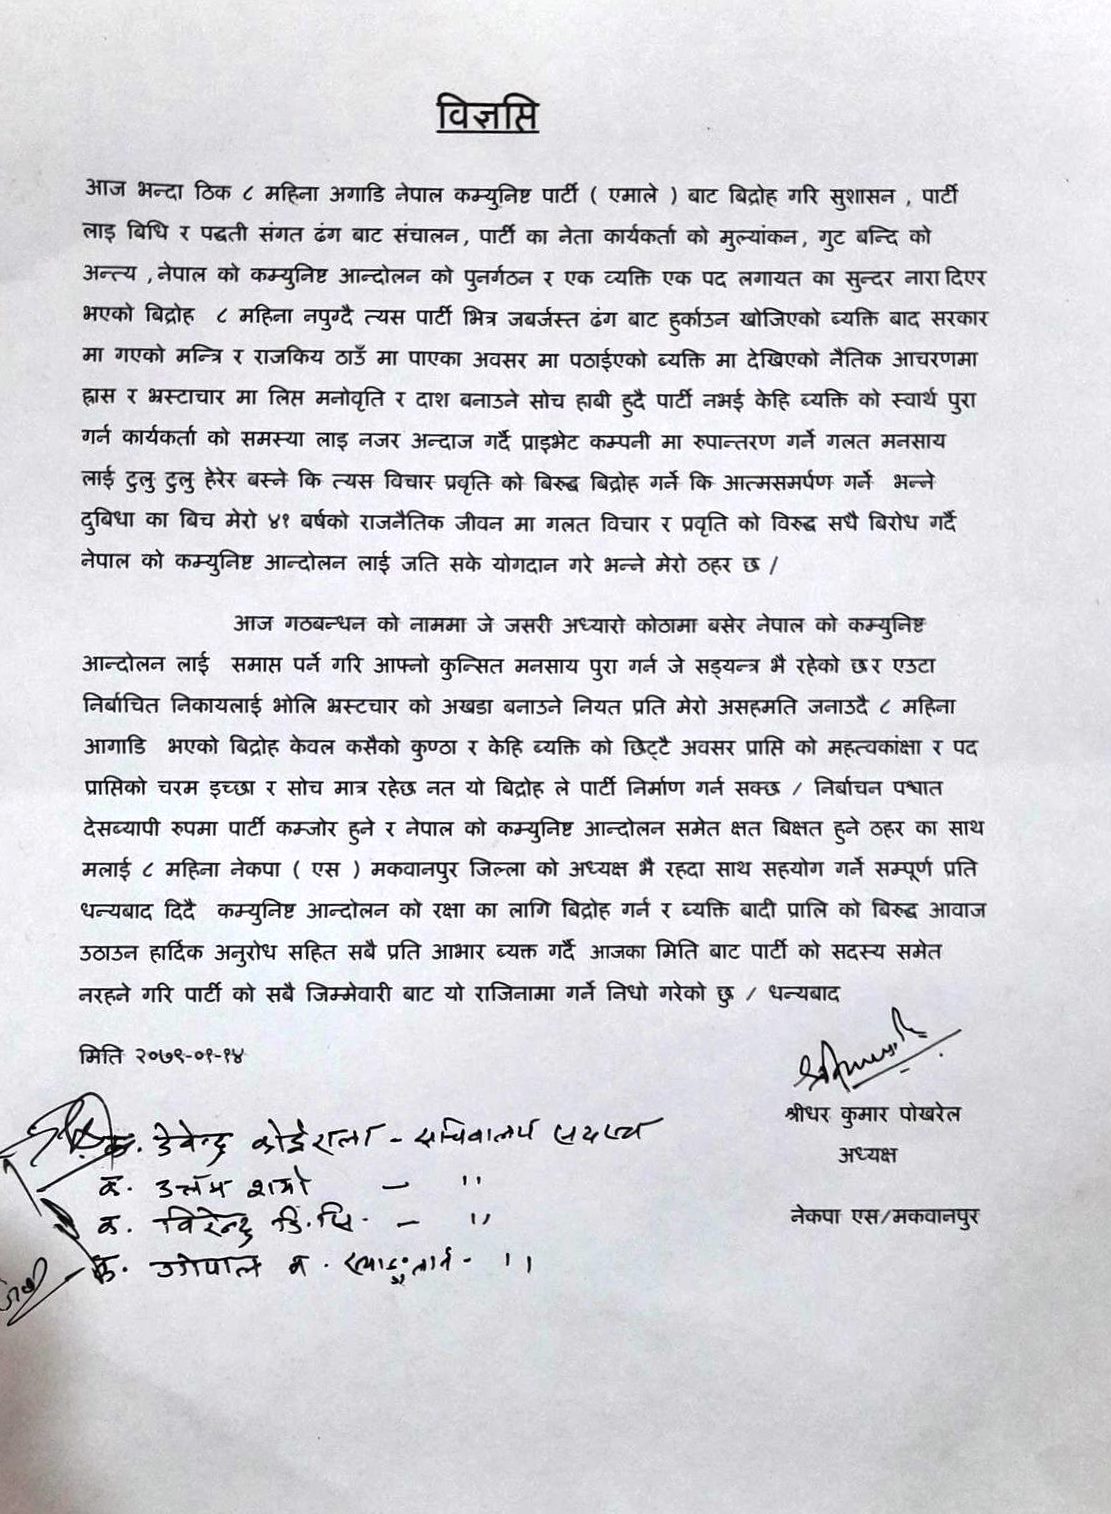 विज्ञप्ति
आज भन्दा ठिक ८ महिना अगाडि नेपाल कम्युनिष्ट पार्टी ( एमाले ) बाट बिद्रोह गरि सुशासन , पार्टी
लाइ बिधि र पद्धती संगत ढंग बाट संचालन, पार्टी का नेता कार्यकर्ता को मुल्यांकन, गुट बन्दि को
अन्त्य ,नेपाल को कम्युनिष्ट आन्दोलन को पुनर्गठन र एक व्यक्ति एक पद लगायत का सुन्दर नारा दिएर
भएको बिद्रोह ८ महिना नपुग्दै त्यस पार्टी भित्र जबर्जस्त ढंग बाट हुर्काउन खोजिएको ब्यक्ति बाद सरकार
मा गएको मन्त्रि र राजकिय ठाउँ मा पाएका अवसर मा पठाईएको ब्यक्ति मा देखिएको नैतिक आचरणमा
ह्रास र भ्रस्टाचार मा लिप्त मनोवृति र दाश बनाउने सोच हाबी हुदै पार्टी नभई केहि ब्यक्ति को स्वार्थ पुरा
गर्न कार्यकर्ता को समस्या लाइ नजर अन्दाज गर्दै प्राइभेट कम्पनी मा रुपान्तरण गर्ने गलत मनसाय
लाई टुलु टुलु हेरेर बस्ने कि त्यस विचार प्रवृति को बिरुद्ध बिद्रोह गर्ने कि आत्मसमर्पण गर्ने भन्ने
दुबिधा का बिच मेरो ४१ बर्षको राजनैतिक जीवन मा गलत विचार र प्रवृति को विरुद्ध सधै बिरोध गर्दै
नेपाल को कम्युनिष्ट आन्दोलन लाई जति सके योगदान गरे भन्ने मेरो ठहर छ /
आज गठबन्धन को नाममा जे जसरी अध्यारो कोठामा बसेर नेपाल को कम्युनिष्ट
आन्दोलन लाई समाप्त पर्ने गरि आफ्नो कुन्सित मनसाय पुरा गर्न जे सड्यन्त्र भै रहेको छ र एउटा
निर्बाचित निकायलाई भोलि भ्रस्टचार को अखडा बनाउने नियत प्रति मेरो असहमति जनाउदै ८ महिना
आगाडि भएको बिद्रोह केवल कसैको कुण्ठा र केहि ब्यक्ति को छिट्टै अवसर प्राप्ति को महत्वकांक्षा र पद
प्राप्तिको चरम इच्छा र सोच मात्र रहेछ नत यो बिद्रोह ले पार्टी निर्माण गर्न सक्छ / निर्बाचन पश्चात
देसब्यापी रुपमा पार्टी कम्जोर हुने र नेपाल को कम्युनिष्ट आन्दोलन समेत क्षत बिक्षत हुने ठहर का साथ
मलाई ८ महिना नेकपा ( एस ) मकवानपुर जिल्ला को अध्यक्ष भै रहदा साथ सहयोग गर्ने सम्पूर्ण प्रति
धन्यबाद दिदै कम्युनिष्ट आन्दोलन को रक्षा का लागि बिद्रोह गर्न र ब्यक्ति बादी प्रालि को बिरुद्ध आवाज
उठाउन हार्दिक अनुरोध सहित सबै प्रति आभार ब्यक्त गर्दै आजका मिति बाट पार्टी को सदस्य समेत
नरहने गरि पार्टी को सबै जिम्मेवारी बाट यो राजिनामा गर्ने निधो गरेको छु / धन्यबाद
मिति २०७९-०१-१४
श्रीधर कुमार पोखरेल
अध्यक्ष
नेकपा एस/मकवानपुर
क. देवेन्द्र कोईराला - सचिवालय सदस्य
क. उत्तम शर्मा - "
क. विरेन्द्र जि.सि. - "
क. गोपाल - "